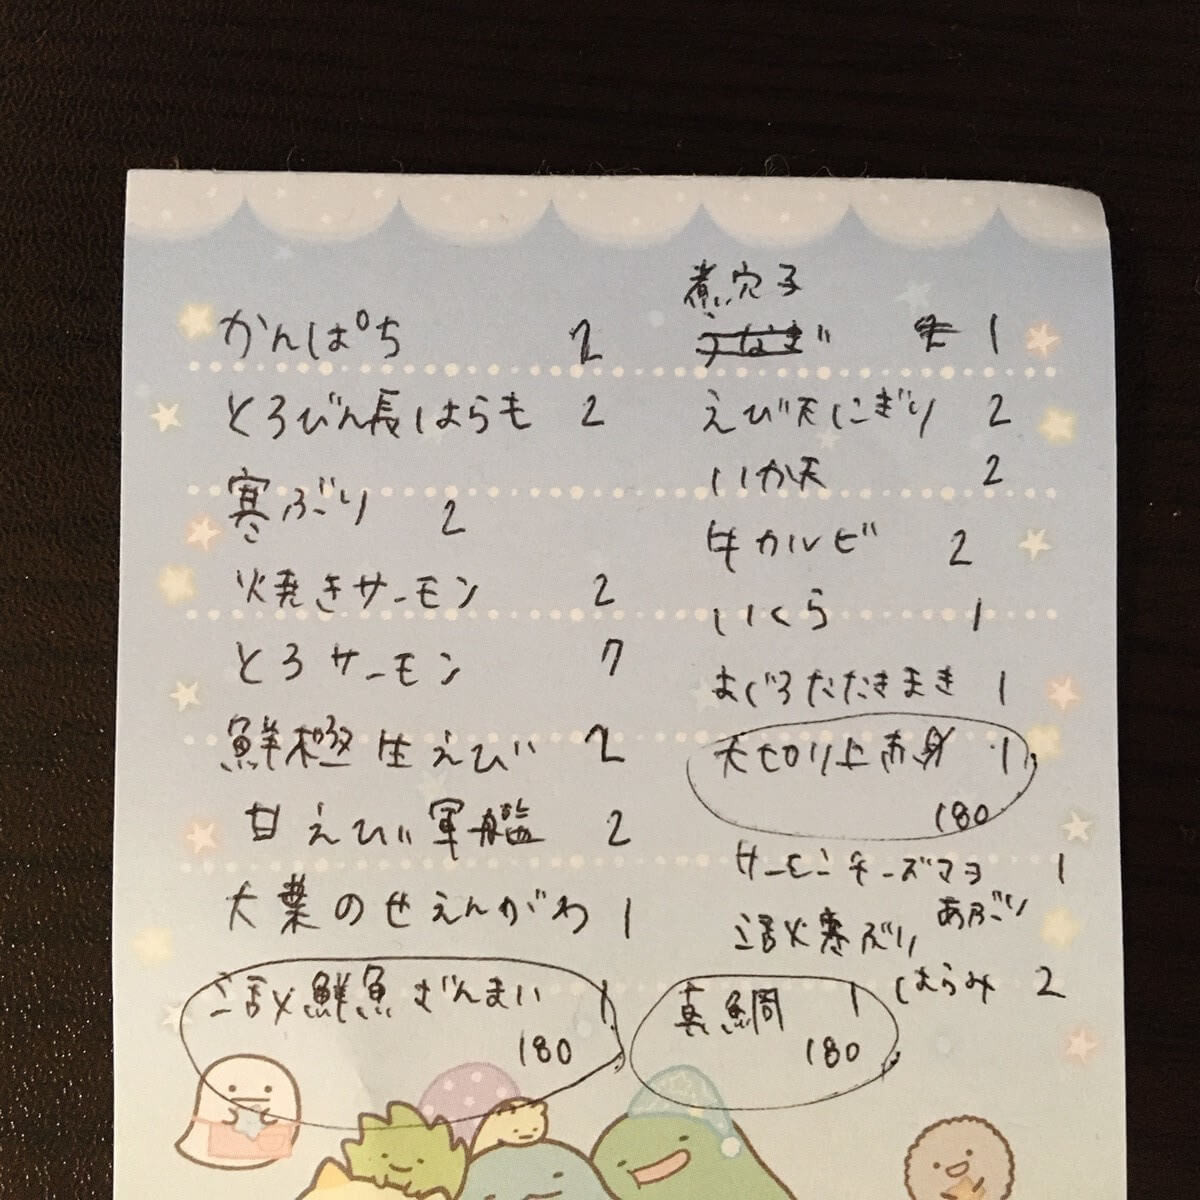 かんぱち 2
とろびん長はらも 2
寒ぶり 2
焼きサーモン 2
とろサーモン 7
鮮極生えび 2
甘えび軍艦 2
大葉のせえんがわ 1
鮮魚ざんまい 1
180
煮穴子
うなぎ 1
えび天にぎり 2
いか天 2
牛カルビ 2
いくら 1
まぐろたたきまき 1
大切り上赤身 1
180
サーモンチーズマヨ 1
寒ぶり
あぶり
はらみ 2
真鯛 1
180